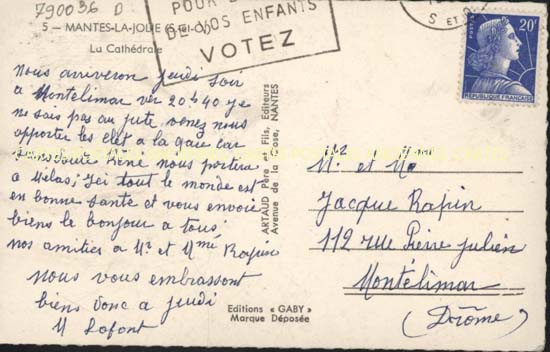 790036 D
5 — MANTES-LA-JOLIE (S.-et-O.)
La Cathédrale
POUR
DE NOS ENFANTS
VOTEZ
S ET O
20F
POSTES
REPUBLIQUE FRANÇAISE
Nous arriveron jeudi soir
a Montelimar ver 20h40 je
ne sais pas au jute venez nous
apporter les clef a la gare car
René nous portera
a Melas; Ici tout le monde est
en bonne santé et vous envoie
biens le bonjour a tous,
nos amitiés a Mr et Mme Rapin
Nous vous embrassont
biens donc a jeudi
M Lafont
ARTAUD Père et Fils, Editeurs
Avenue de la Close, NANTES
Editions « GABY »
Marque Déposée
Mr et Me
Jacque Rapin
112 rue Pierre Julien
Montélimar
(Drôme)